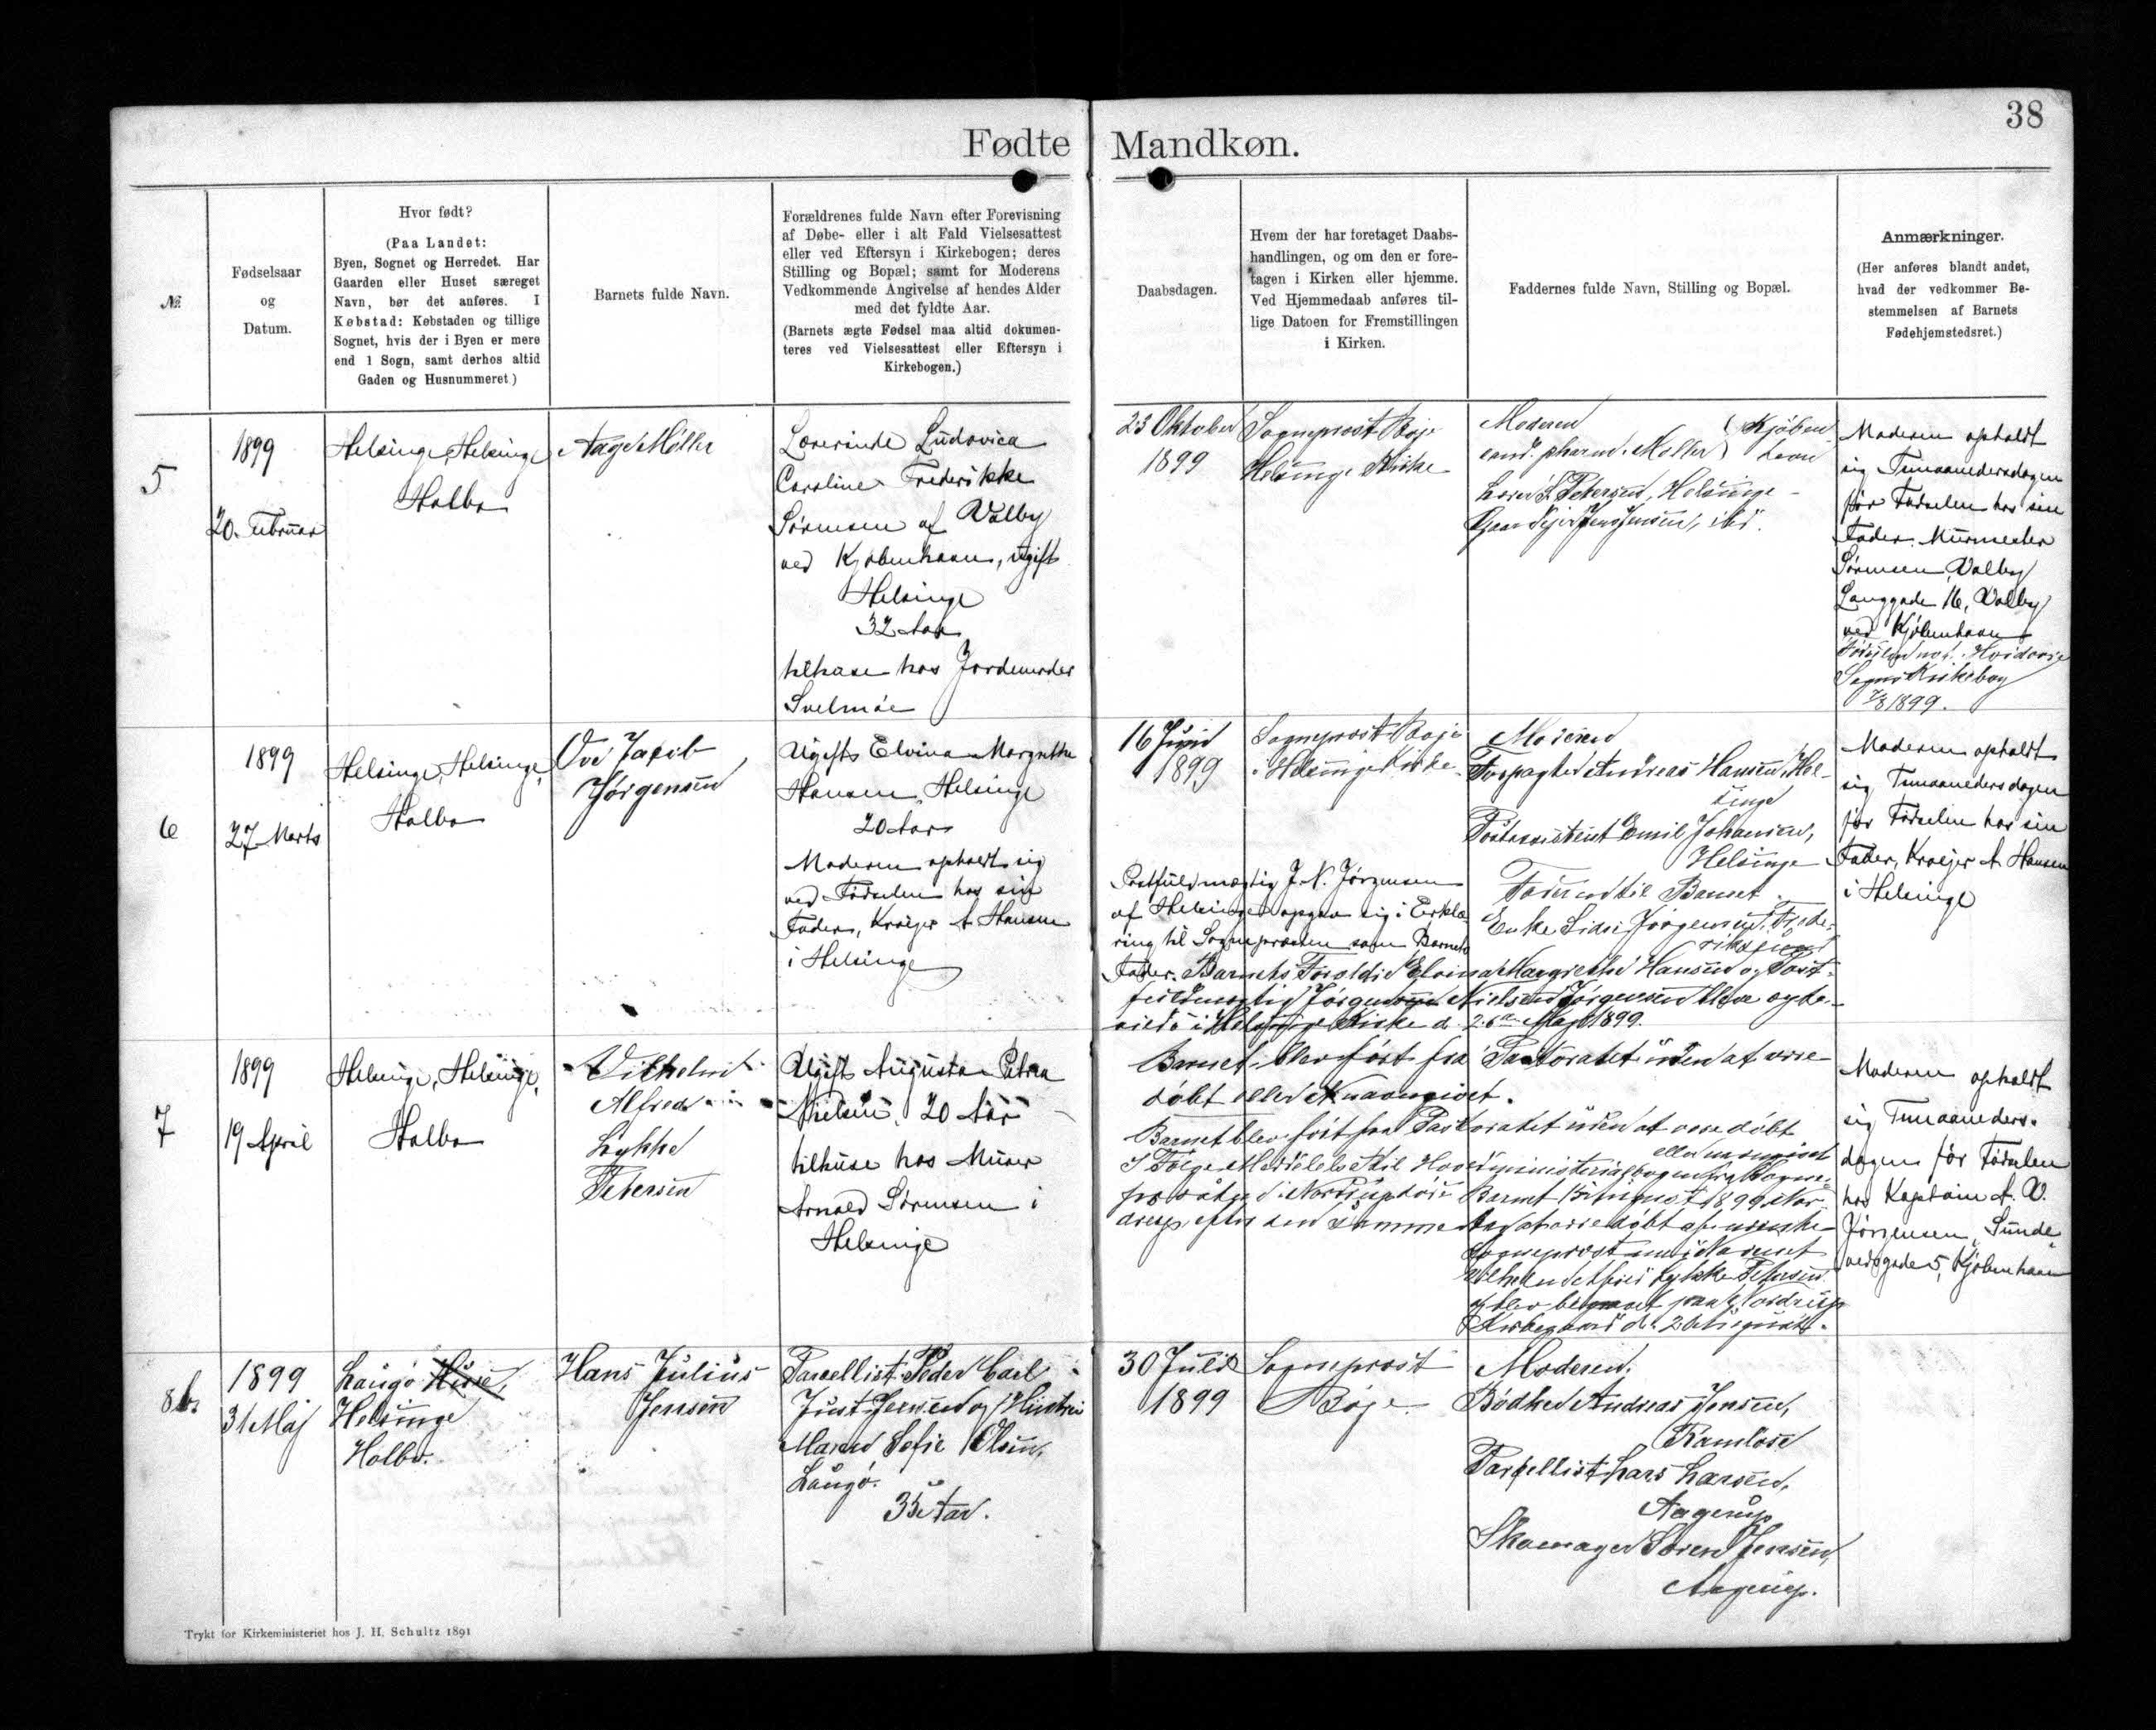 38
Fødte Mandkøn.
№
Fødselsaar
og
Datum.
Hvor født?
(Paa Landet:
Byen, Sognet og Herredet. Har
Gaarden eller Huset særeget
Navn, bør det anføres. I
Købstad: Købstaden og tillige
Sognet, hvis der i Byen er mere
end 1 Sogn, samt derhos altid
Gaden og Husnummeret)
Barnets fulde Navn.
Forældrenes fulde Navn efter Forevisning
af Døbe- eller i alt Fald Vielsesattest
eller ved Eftersyn i Kirkebogen; deres
Stilling og Bopæl; samt for Moderens
Vedkommende Angivelse af hendes Alder
med det fyldte Aar.
(Barnets ægte Fødsel maa altid dokumen-
teres ved Vielsesattest eller Eftersyn i
Kirkebogen.)
Daabsdagen.
Hvem der har foretaget Daabs-
handlingen, og om den er fore-
tagen i Kirken eller hjemme.
Ved Hjemmedaab anføres til-
lige Datoen for Fremstillingen
i Kirken.
Faddernes fulde Navn, Stilling og Bopæl.
Anmærkninger.
(Her anføres blandt andet,
hvad der vedkommer Be-
stemmelsen af Barnets
Fødehjemstedsret.)
5
1899
20. Februar
Helsinge, Helsinge
Holbo
Aage Møller
Lærerinde Ludovica
Caroline Frederikke
Sørensen af Valby
ved Kjøbenhavn, ugift
Helsinge
32 Aar
tilhuse hos Jordemoder
Svelmøe
23 Oktober
1899
Sogneprest Boje
Helsinge Kirke
Moderen
cand. pharm. Møller } Kjøben-
havn
Lærer S. Petersen, Helsinge
Gaardejer Jens Jensen, ibd.
Moderen opholdt
sig Timaanedersdagen
før Fødselen hos sin
Fader, Murmester
Sørensen, Valby
Langgade 16, Valby
ved Kjøbenhavn
Hvidovre
Sogns Kirkebog
7/8 1899.
6
1899
27 Marts
Helsinge, Helsinge,
Holbo
Ove Jacob
Jørgensen
Ugift Elvina Margrethe
Hansen, Helsinge
20 Aar
Moderen opholdt sig
ved Fødselen hos sin
Fader, Kroejer A. Hansen
i Helsinge
16 Juni
1899
Sogneprest Boje
i Helsinge Kirke
Moderen
Forpagter Andreas Hansen, Hel-
singe
Postassistent Emil Johansen,
Helsinge
Faderen til Barnet
Enke Sidse Jørgensen, Frede-
rikssund
Postfuldmægtig J. N. Jørgensen
af Helsinge opgav sig i Erklæ-
ring til Sognepræsten som Barnets
Fader. Barnets Forældre Elvina Margrethe Hansen og Post-
fuldmægtig Jørgen Nielsen Jørgensen bleve ægte-
viede i Helsinge Kirke d. 26de Maj 1899.
Moderen opholdt
sig Timaanedersdagen
før Fødselen hos sin
Fader, Kroejer A. Hansen
i Helsinge
7
1899
19 April
Helsinge, Helsinge,
Holbo
Vilhelm
Alfred
Lykke
Petersen
Ugift Augusta Petra
Nielsen, 20 Aar
tilhuse hos Murer
Arnold Sørensen i
Helsinge
Barnet blev ført fra Pastoratet uden at være
døbt eller navngivet.
Barnet blev ført fra Pastoratet uden at være døbt
eller navngivet
I Følge Meddelelse til Hovedministerialbogen fra Sogne-
Barnet 15 August 1899
samme Dag at være døbt af
Sogneprest navngivet
Vilhelm Alfred Lykke Petersen
og blev begravet paa Nordrup
Kirkegaard d. 26 August.
Moderen opholdt
sig Timaaneders-
dagen før Fødselen
hos Kaptain A. V.
Jørgensen, Sunde-
vedsgade 5, Kjøbenhavn
8
1899
31 Maj
Laugø Huse,
Helsinge
Holbo.
Hans Julius
Jensen
Parcellist Peder Carl
Just Jensen og Hustru
Maren Sofie Olsen,
Laugø.
35 Aar.
30 Juli
1899
Sogneprest
Boje.
Moderen.
Bødker Andreas Jensen,
Ramløse
Parcellist Lars Larsen,
Aagerup
Skomager Søren Jensen,
Aagerup.
Trykt for Kirkeministeriet hos J. H. Schultz 1891